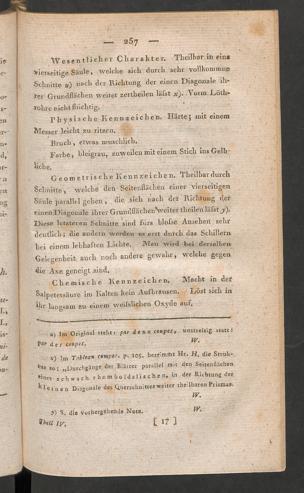 — 257 —
Wesentlicher Charakter. Theilbar in eine
vierseitige Säule, welche sich durch sehr vollkommne
Schnitte u) nach der Richtung der einen Diagonale ih-
rer Grundflächen weiter zertheilen läſst x). Vorm Löth-
rohre nicht flüchtig.
Physische Kennzeichen. Härte; mit einem
Messer leicht zu ritzen.
Bruch, etwas muschlich.
Farbe, bleigrau, zuweilen mit einem Stich ins Gelb-
liche.
Geometrische Kennzeichen. Theilbar durch
Schnitte, welche den Seitenflächen einer vierseitigen
Säule parallel gehen, die sich nach der Richtung der
einen Diagonale ihrer Grundflächen weiter theilen läſst y).
Diese letzteren Schnitte sind fürs bloſse Ansehen sehr
deutlich; die andern werden es erst durch das Schillern
bei einem lebhaften Lichte. Man wird bei derselben
Gelegenheit auch noch andere gewahr, welche gegen
die Axe geneigt sind.
Chemische Kennzeichen. Macht in der
Salpetersäure im Kalten kein Aufbrausen. Löst sich in
ihr langsam zu einem weiſslichen Oxyde auf.
u) Im Original steht: par deux coupes, unstreitig statt:
par des coupes. W.
x) Im Tableau compar. p. 105. bestimmt Hr. H. die Struk-
tur so: „Durchgänge der Blätter parallel mit den Seitenflächen
einer schwach rhomboidalischen, in der Richtung der
kleinen Diagonale des Querschnittes weiter theilbaren Prismas.
W.
y) S. die vorhergehende Note. W.
Theil IV. [ 17 ]